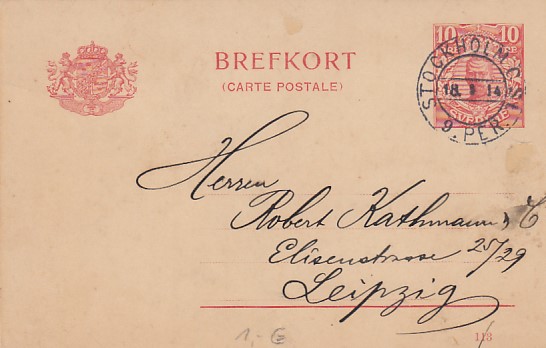 BREFKORT
(CARTE POSTALE)
10 10
STOCKHOLM
18. 1 14
9. PER.
Herren
Robert Kathmann, C
Elisenstrasse 25/29
Leipzig
1,- €
113